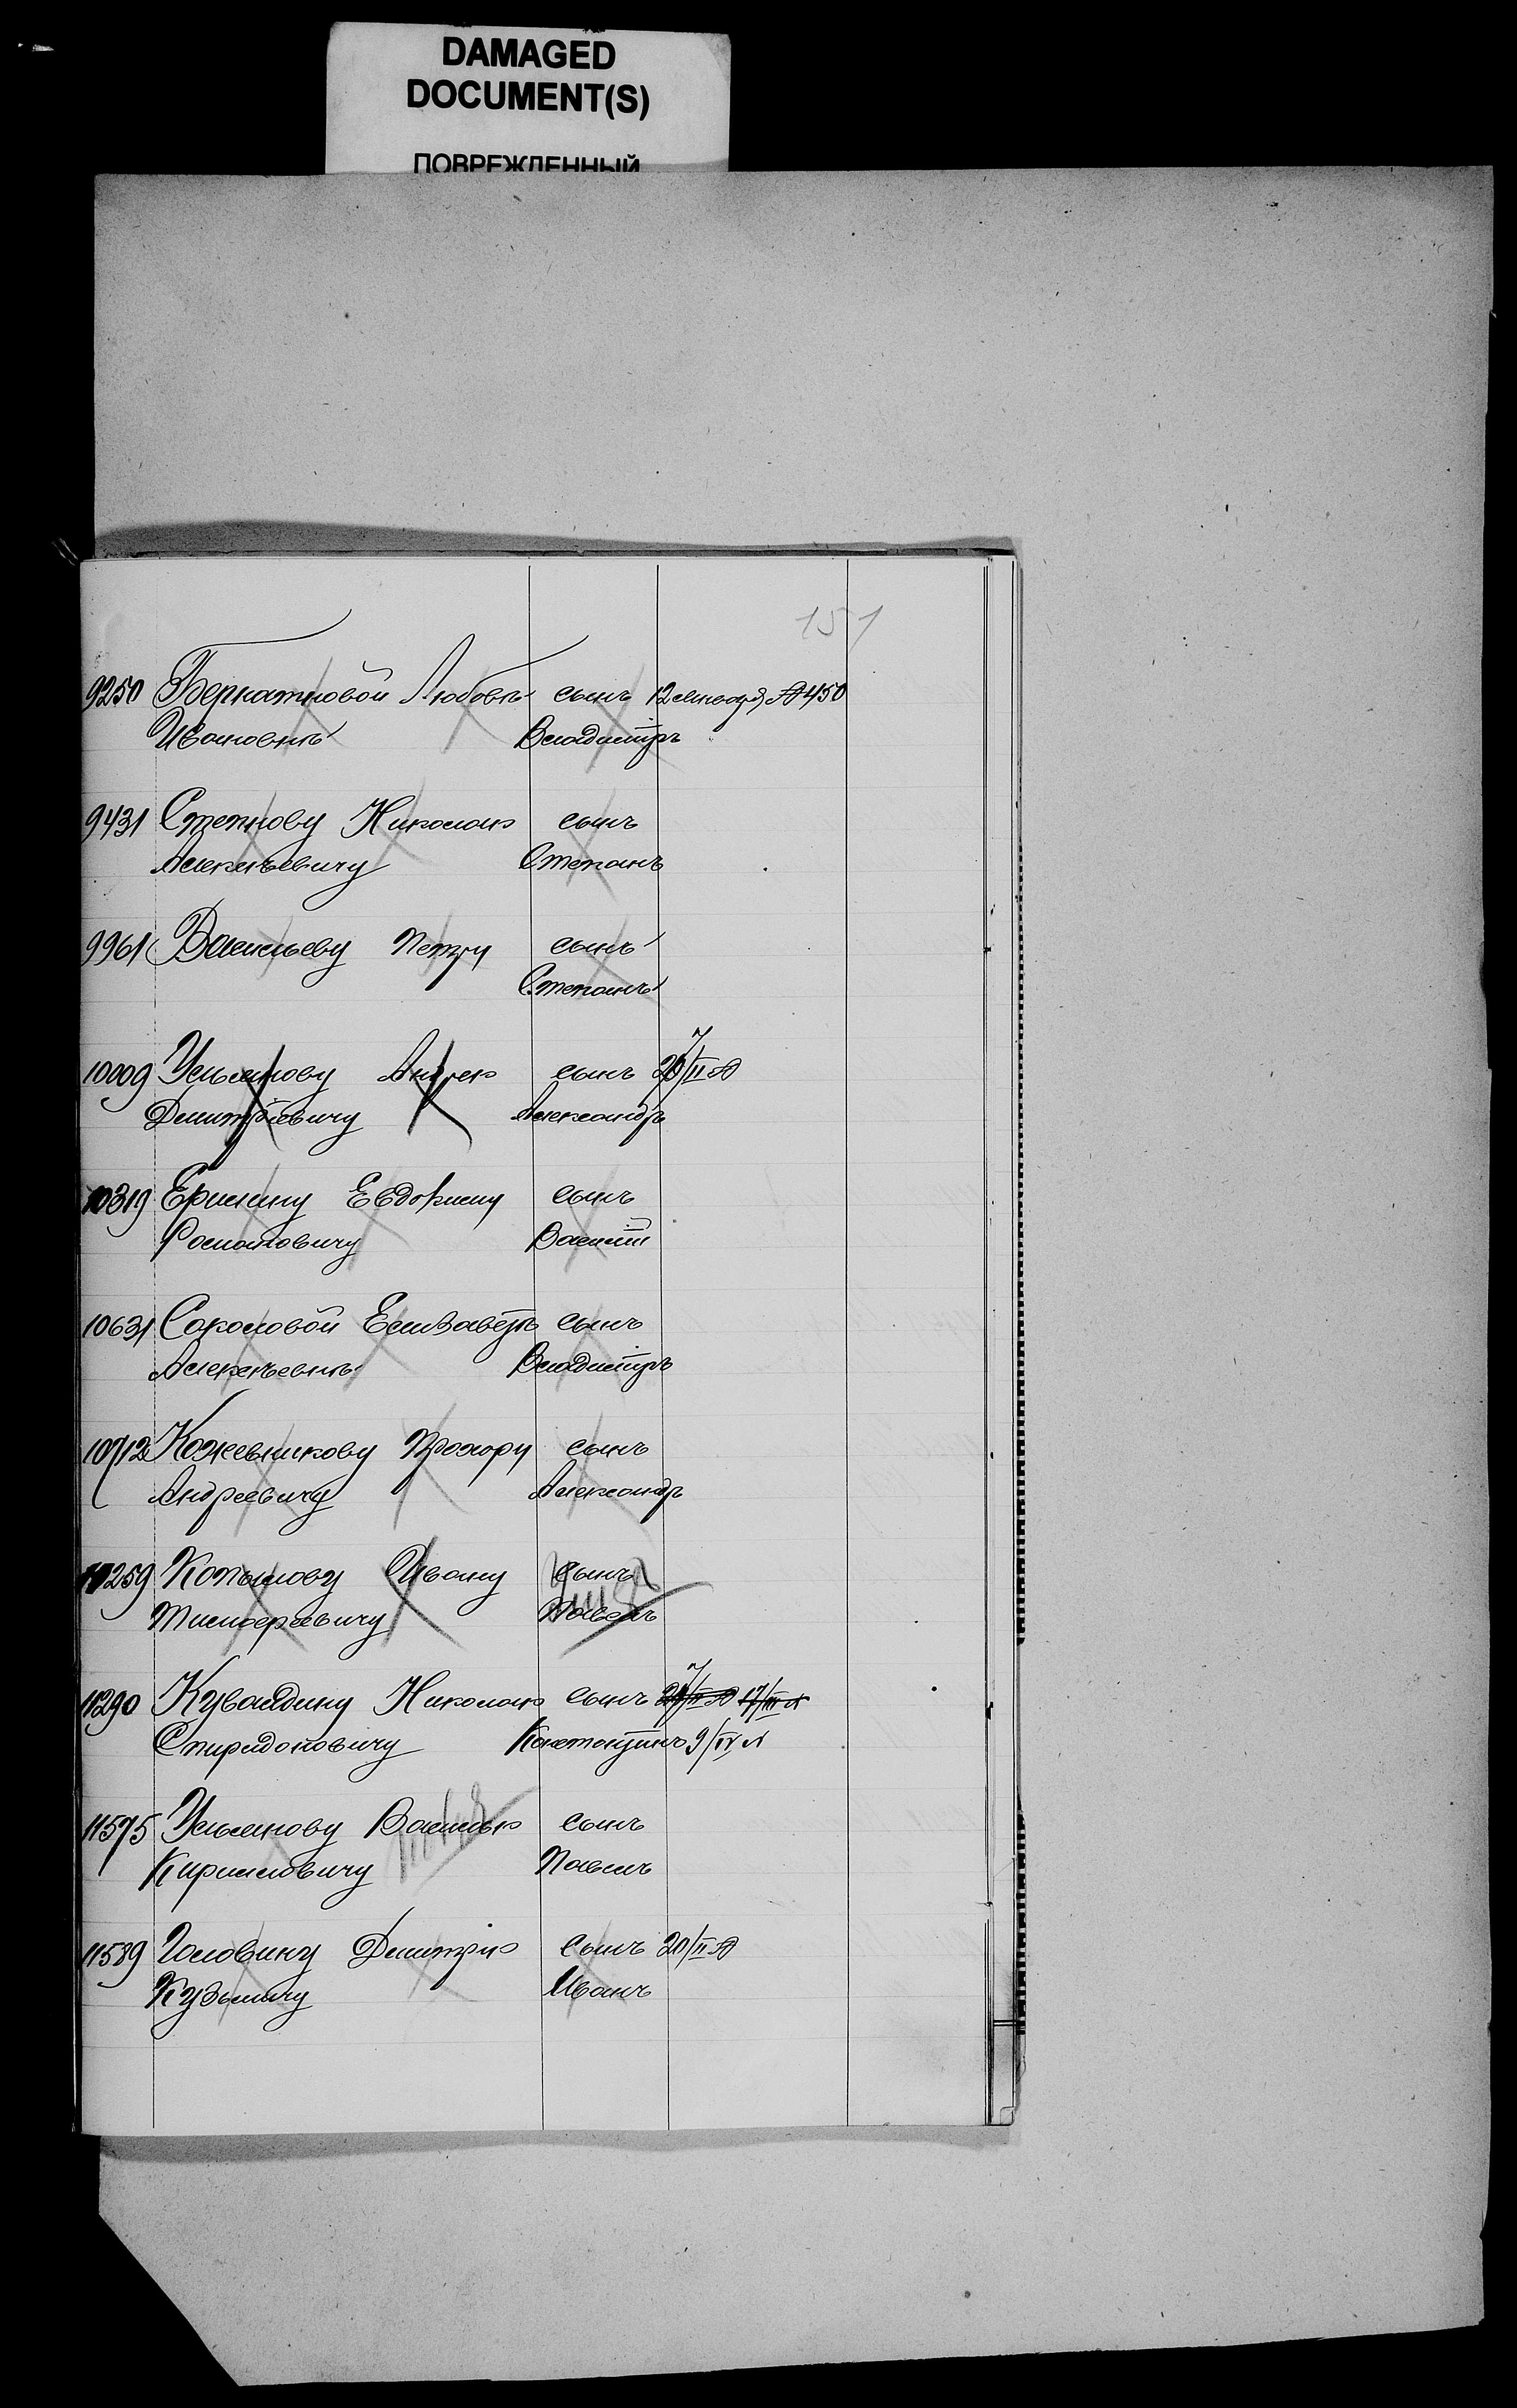 DAMAGED
DOCUMENT(S)
ПОВРЕЖДЕННЫЙ
151
9250 Беркатновой Любовѣ сынъ 12 января А 450
Ивановнѣ Владиміръ
9431 Степнову Николаю сынъ
Алексѣевичу Степанъ
9961 Васильеву Петру сынъ
Степанъ
10009 Ульянову Андрею сынъ 20/II А
Дмитріевичу Александръ
10319 Ершину Евдокиму сынъ
Романовичу Василій
10631 Соколовой Елизаветѣ сынъ
Алексѣевнѣ Владиміръ
10712 Кожевникову Прохору сынъ
Андреевичу Александръ
11259 Копылову Ивану сынъ
Тимофеевичу Павелъ
11290 Кувалдину Николаю сынъ 17/III
Спиридоновичу Константинъ 9/IV
11575 Ульянову Василью сынъ
Кирилловичу Павелъ
11589 Головину Дмитрію сынъ 20/II А
Кузьмичу Иванъ